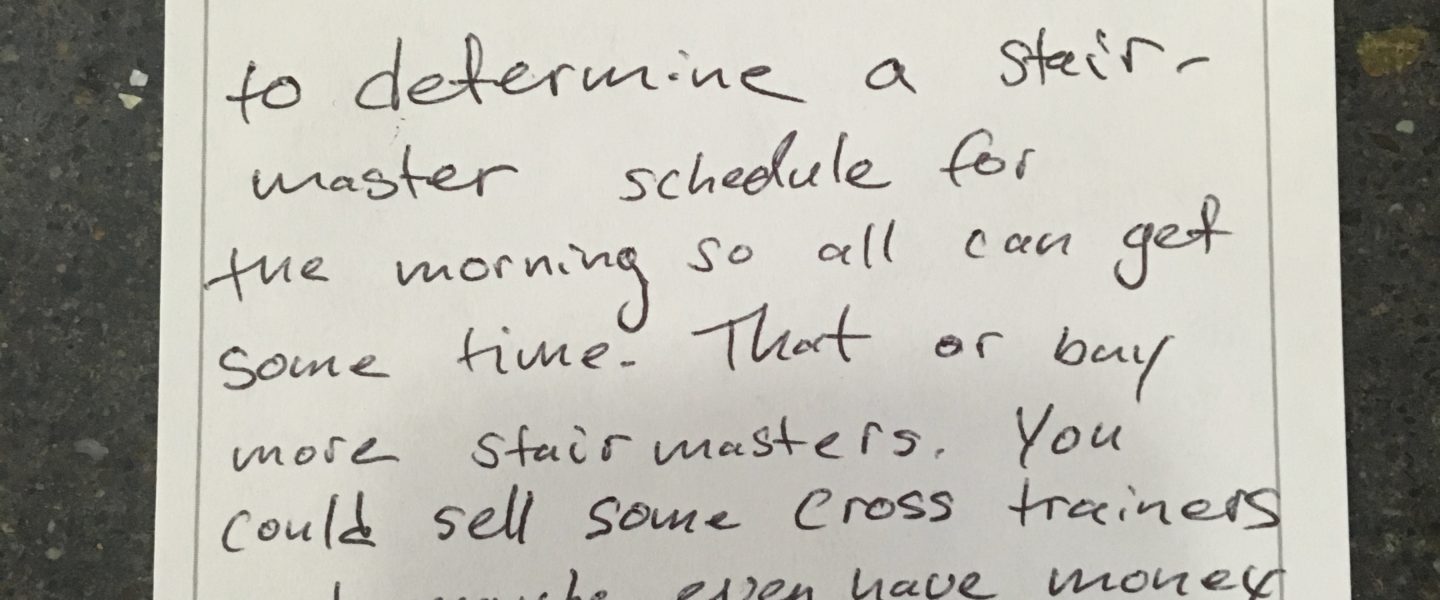 to determine a stair-
master schedule for
the morning so all can get
some time. That or buy
more stairmasters. You
could sell some cross trainers
maybe even have money